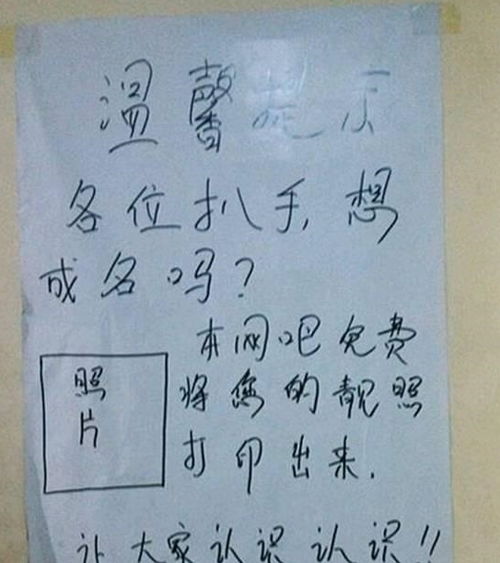 温馨提示
各位扒手,想
成名吗?
本网吧免费
将您的靓照
打印出来.
照
片
让大家认识认识!!